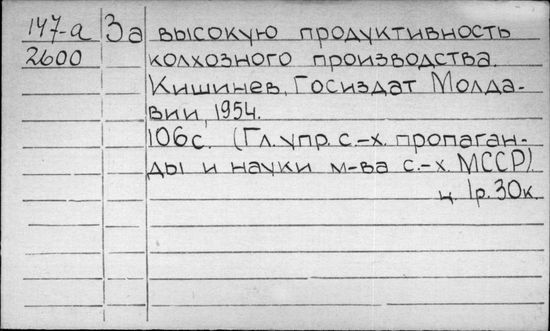 147-а За высокую продуктивность
2600 колхозного производства.
Кишинев, Госиздат Молда-
вии, 1954.
106с. (Гл. упр. с.-х. пропаган-
ды и науки м-ва с.-х. МССР).
ц. 1р. 30к.